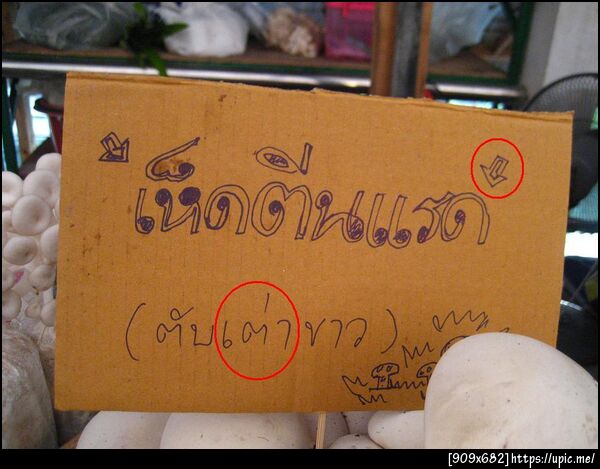 เห็ดตีนแรด
(ตับเต่าขาว)
[909x682]https://upic.me/